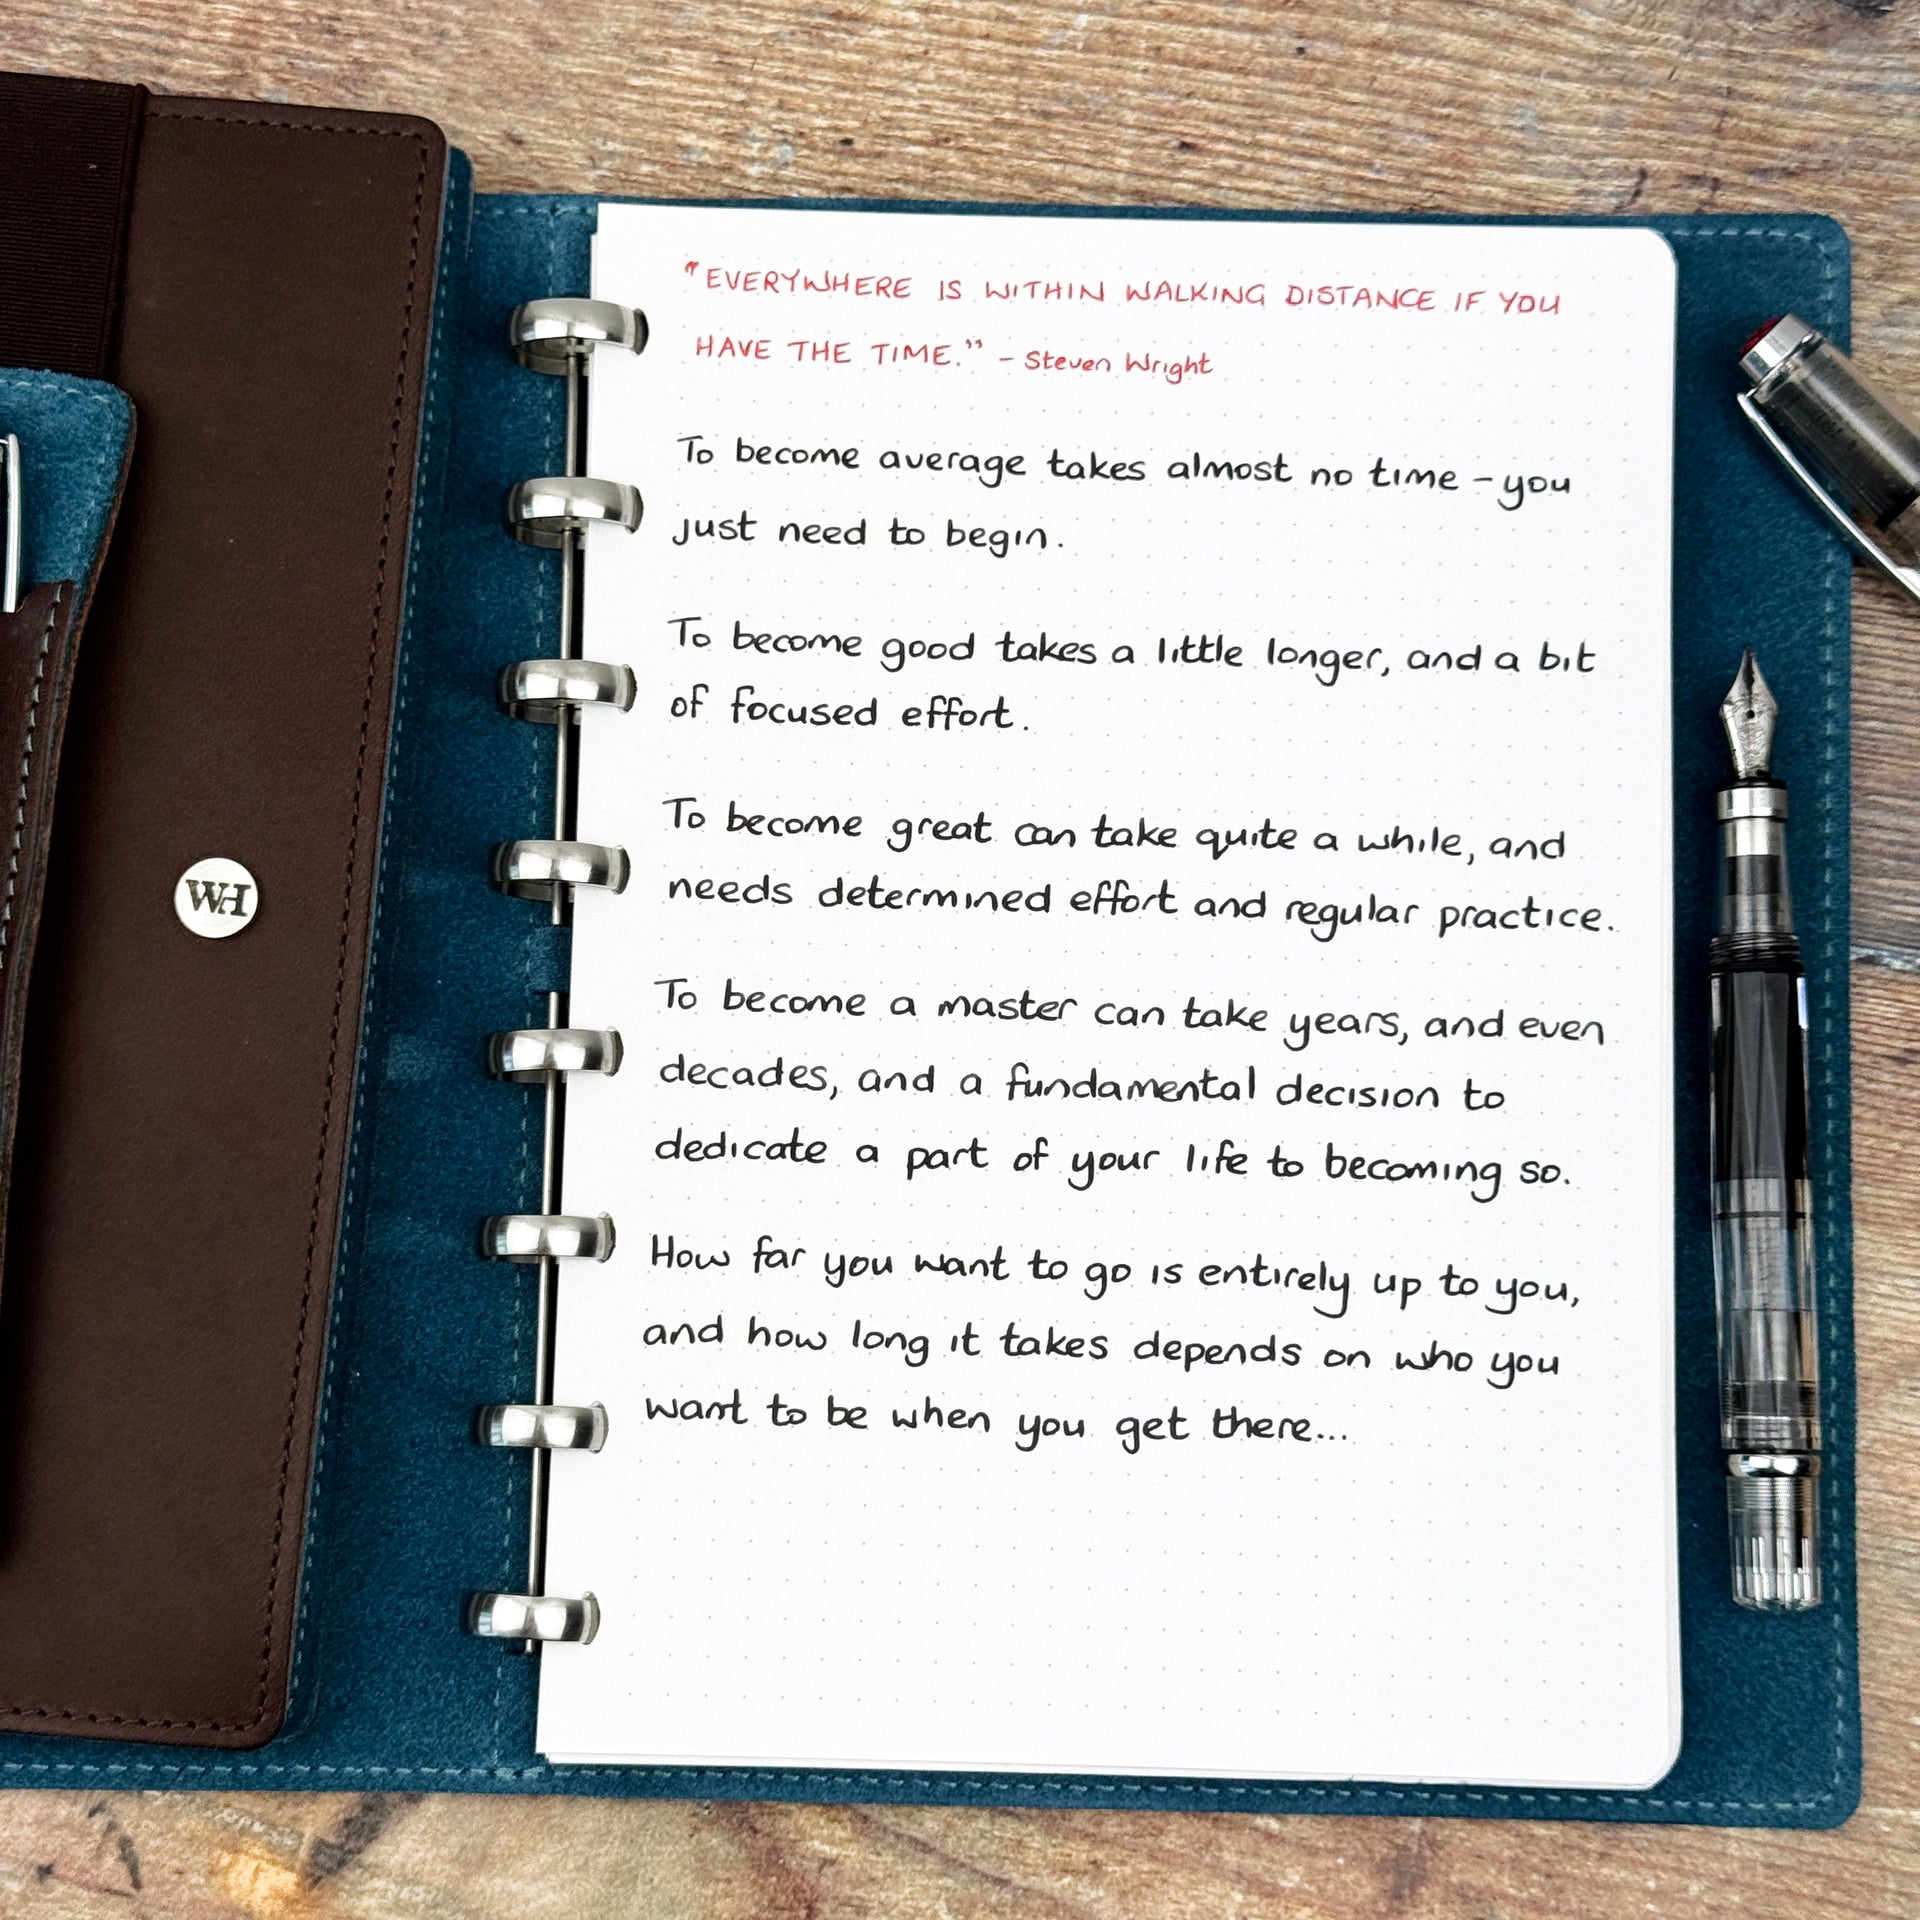 "EVERYWHERE IS WITHIN WALKING DISTANCE IF YOU
HAVE THE TIME." - Steven Wright
To become average takes almost no time - you
just need to begin.
To become good takes a little longer, and a bit
of focused effort.
To become great can take quite a while, and
needs determined effort and regular practice.
To become a master can take years, and even
decades, and a fundamental decision to
dedicate a part of your life to becoming so.
How far you want to go is entirely up to you,
and how long it takes depends on who you
want to be when you get there...
WH